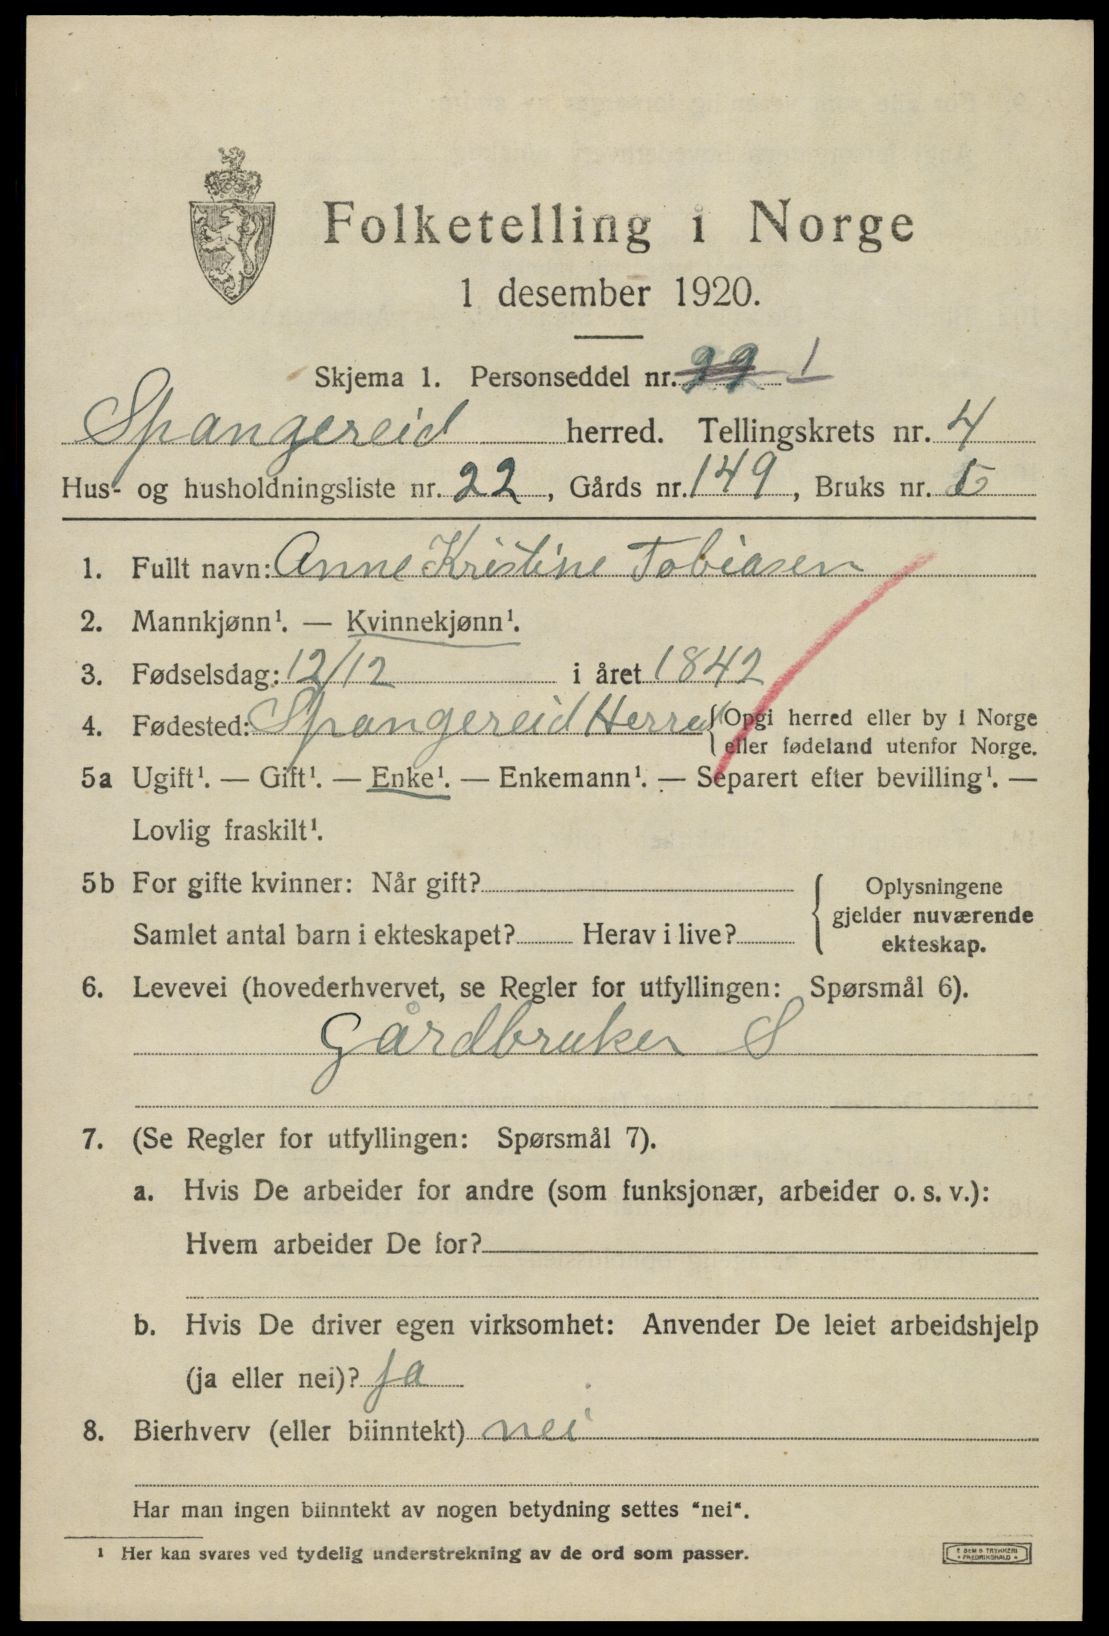 Folketelling i Norge
1 desember 1920.
Skjema 1. Personseddel nr. 22 1
Spangereid herred. Tellingskrets nr. 4
Hus- og husholdningsliste nr. 22, Gårds nr. 149, Bruks nr.
1. Fullt navn: Anne Kristine Tobiasen
2. Mannkjønn¹. — Kvinnekjønn¹.
3. Fødselsdag: 12/12 i året 1842
4. Fødested: Spangereid Herred {Opgi herred eller by i Norge
eller fødeland utenfor Norge.
5a Ugift¹. — Gift¹. — Enke¹. — Enkemann¹. — Separert efter bevilling¹. —
Lovlig fraskilt¹.
5b For gifte kvinner: Når gift?
Samlet antal barn i ekteskapet? Herav i live?
{Oplysningene
gjelder nuværende
ekteskap.
6. Levevei (hovederhvervet, se Regler for utfyllingen: Spørsmål 6).
Gårdbruker S
7. (Se Regler for utfyllingen: Spørsmål 7).
a. Hvis De arbeider for andre (som funksjonær, arbeider o. s. v.):
Hvem arbeider De for?
b. Hvis De driver egen virksomhet: Anvender De leiet arbeidshjelp
(ja eller nei)? Ja
8. Bierhverv (eller biinntekt) nei
Har man ingen biinntekt av nogen betydning settes “nei“.
¹ Her kan svares ved tydelig understrekning av de ord som passer.